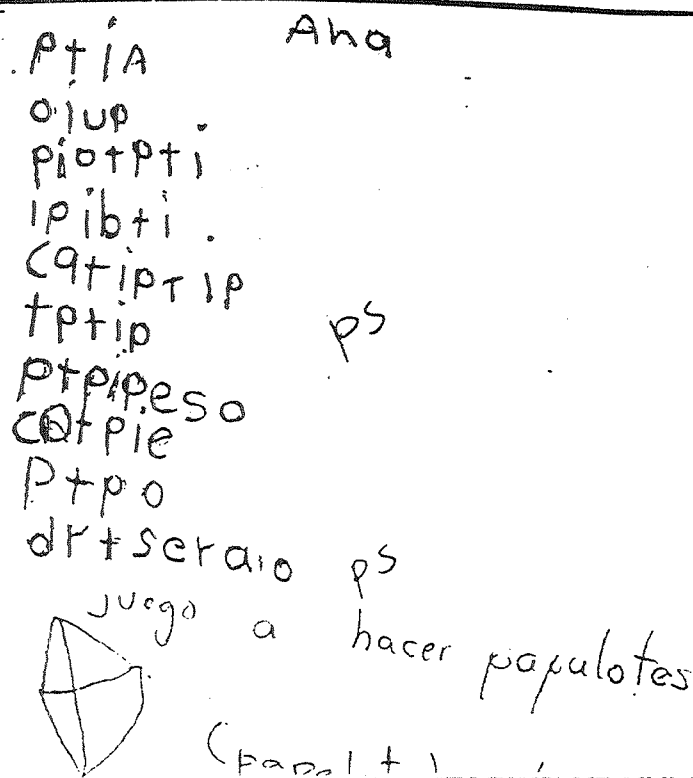 Ana
PtiA
oiup
piotPti
iPibti
catipTip
tptip
ps
ptpipeso
catpie
Ptpo
drtseraio ps
juego a hacer papulotes